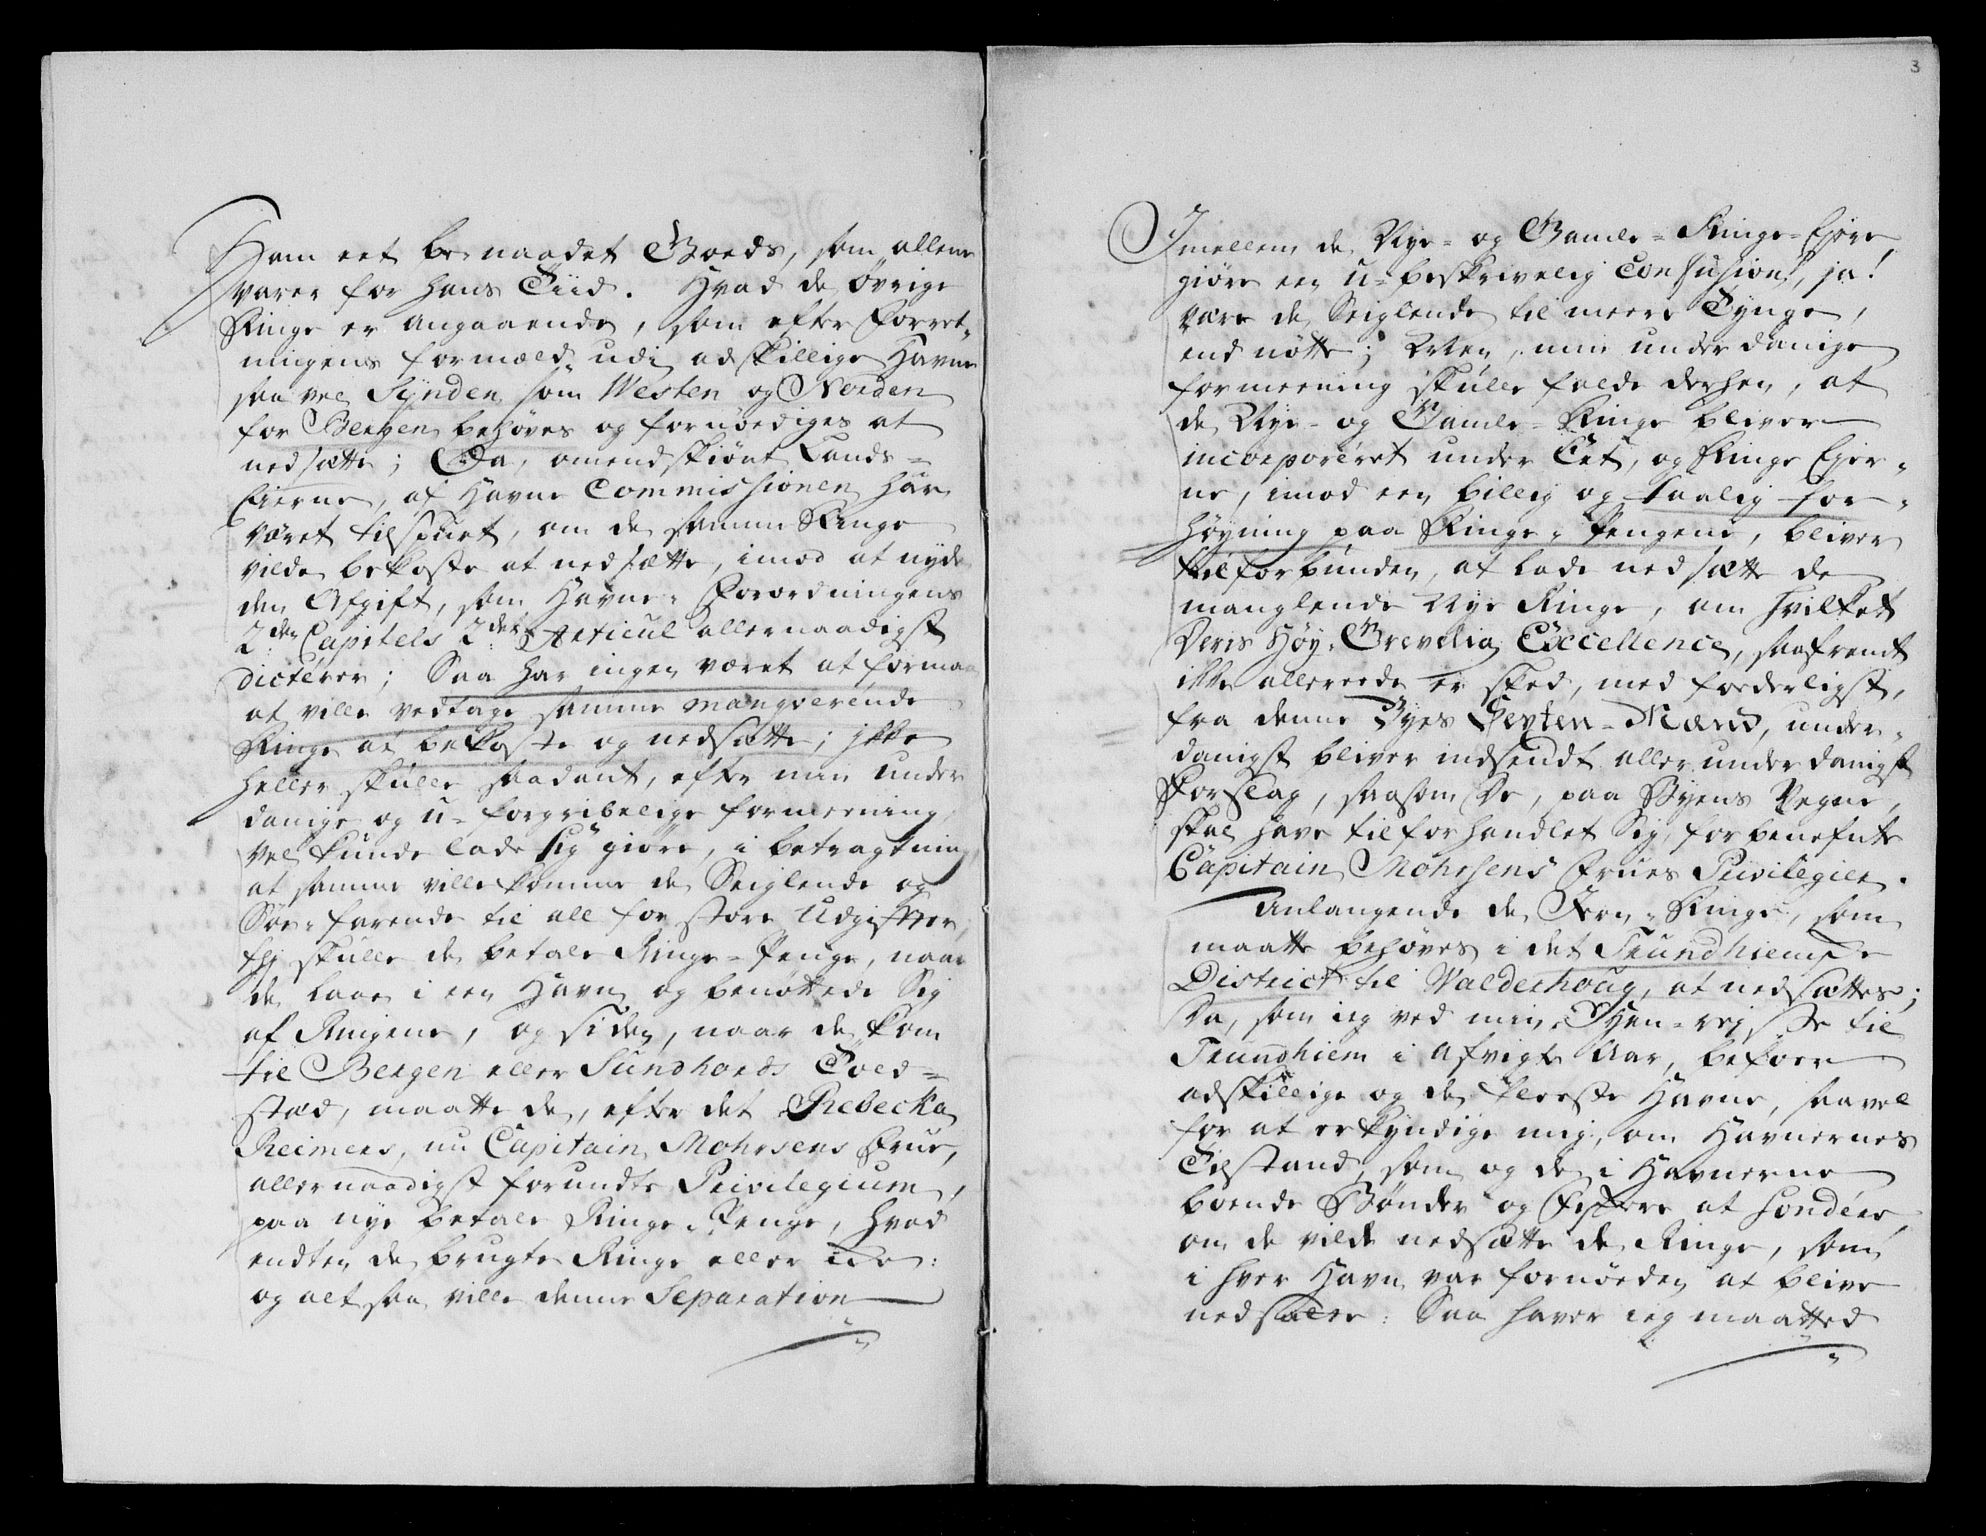 Ham eet benaadet Goeds, som allene
varer for hans Tiid. Hvad de øvrige
Ringe er angaaende, som efter Forret-
ningens formæld udi adskillige Havne
saa vel Synden som Westen og Norden
for Bergen behøves og fornøediges at
nedsætte; Da, omendskiønt Lands-
Eierne, af Havne Commissionen har
været tilspurt, om de samme Ringe
vilde bekoste at nedsætte, imod at nyde
den Afgift, som Havne-Forordningens
2.den Capitels 2.den Articul allernaadigst
dicterer; Saa har ingen været at formaae
at ville vedtage samme manqverende
Ringe at bekoste og nedsætte; ikke
heller skulle saadant, efter min under
danige og u-forgribelige formeening,
vel kunde lade sig giøre, i betragtning
at samme ville komme de Seiglende og
Søe-farende til all for store Udgifter,
thj skulle de betale Ringe-Penge, naar
de laae i een Havn og benøttede Sig
af Ringene, og siden, naar de kom
til Bergen eller Sundhords Toed-
stæd, maatte de, efter det Rebecka
Reimers, nu Capitain Mohrsens Frue,
allernaadigst forundte Privilegium,
paa nye betale Ringe-Penge, hvad
endten de brugte Ringe eller icke:
og alt saa ville denne Separation
3
Imellem de Nye- og Gamle-Ringe-Ejere
giøre een u-beskrivelig Confusion!, ja!
være de Seiglende til meere Tynge,
end nøtte; Men, min underdanige
formeening skulle falde derhen, at
de Nye- og Gamle-Ringe bliver
incorporeret under Eet, og Ringe Ejer-
ne, imod een billig og taalig for-
høyning paa Ringe-Pengene, bliver
tilforbunden, at lade nedsætte de
manglende Nye Ringe, om hvilket
Deris Høy-Grevelig Excellence, saafremt
ikke allereede er sked, med foederligst,
fra denne Byes Sexten-Mænd, under-
danigst bliver indsendt aller underdanigst
Forslag, saasom De, paa Byens Vegne,
skal have tilforhandlet Sig forbenefnte
Capitain Mohrsens Frues Privilegier.
Anlangende de Jern-Ringe, som
maatte behøves i det Trundhiemske
District til Valderhoug, at nedsættes;
Da, som ieg ved min Hen-rejse til
Trundhiem i afvigte Aar, befoer
adskillige og de fleeste Havne, saavel
for at erkyndige mig, om Havnernes
Tilstand, som og de i Havnerne
boende Bønder og Fiskere at sondere,
om de vilde nedsætte de Ringe, som
i hver Havn var fornøeden at blive
nedsatte: Saa haver ieg maatted